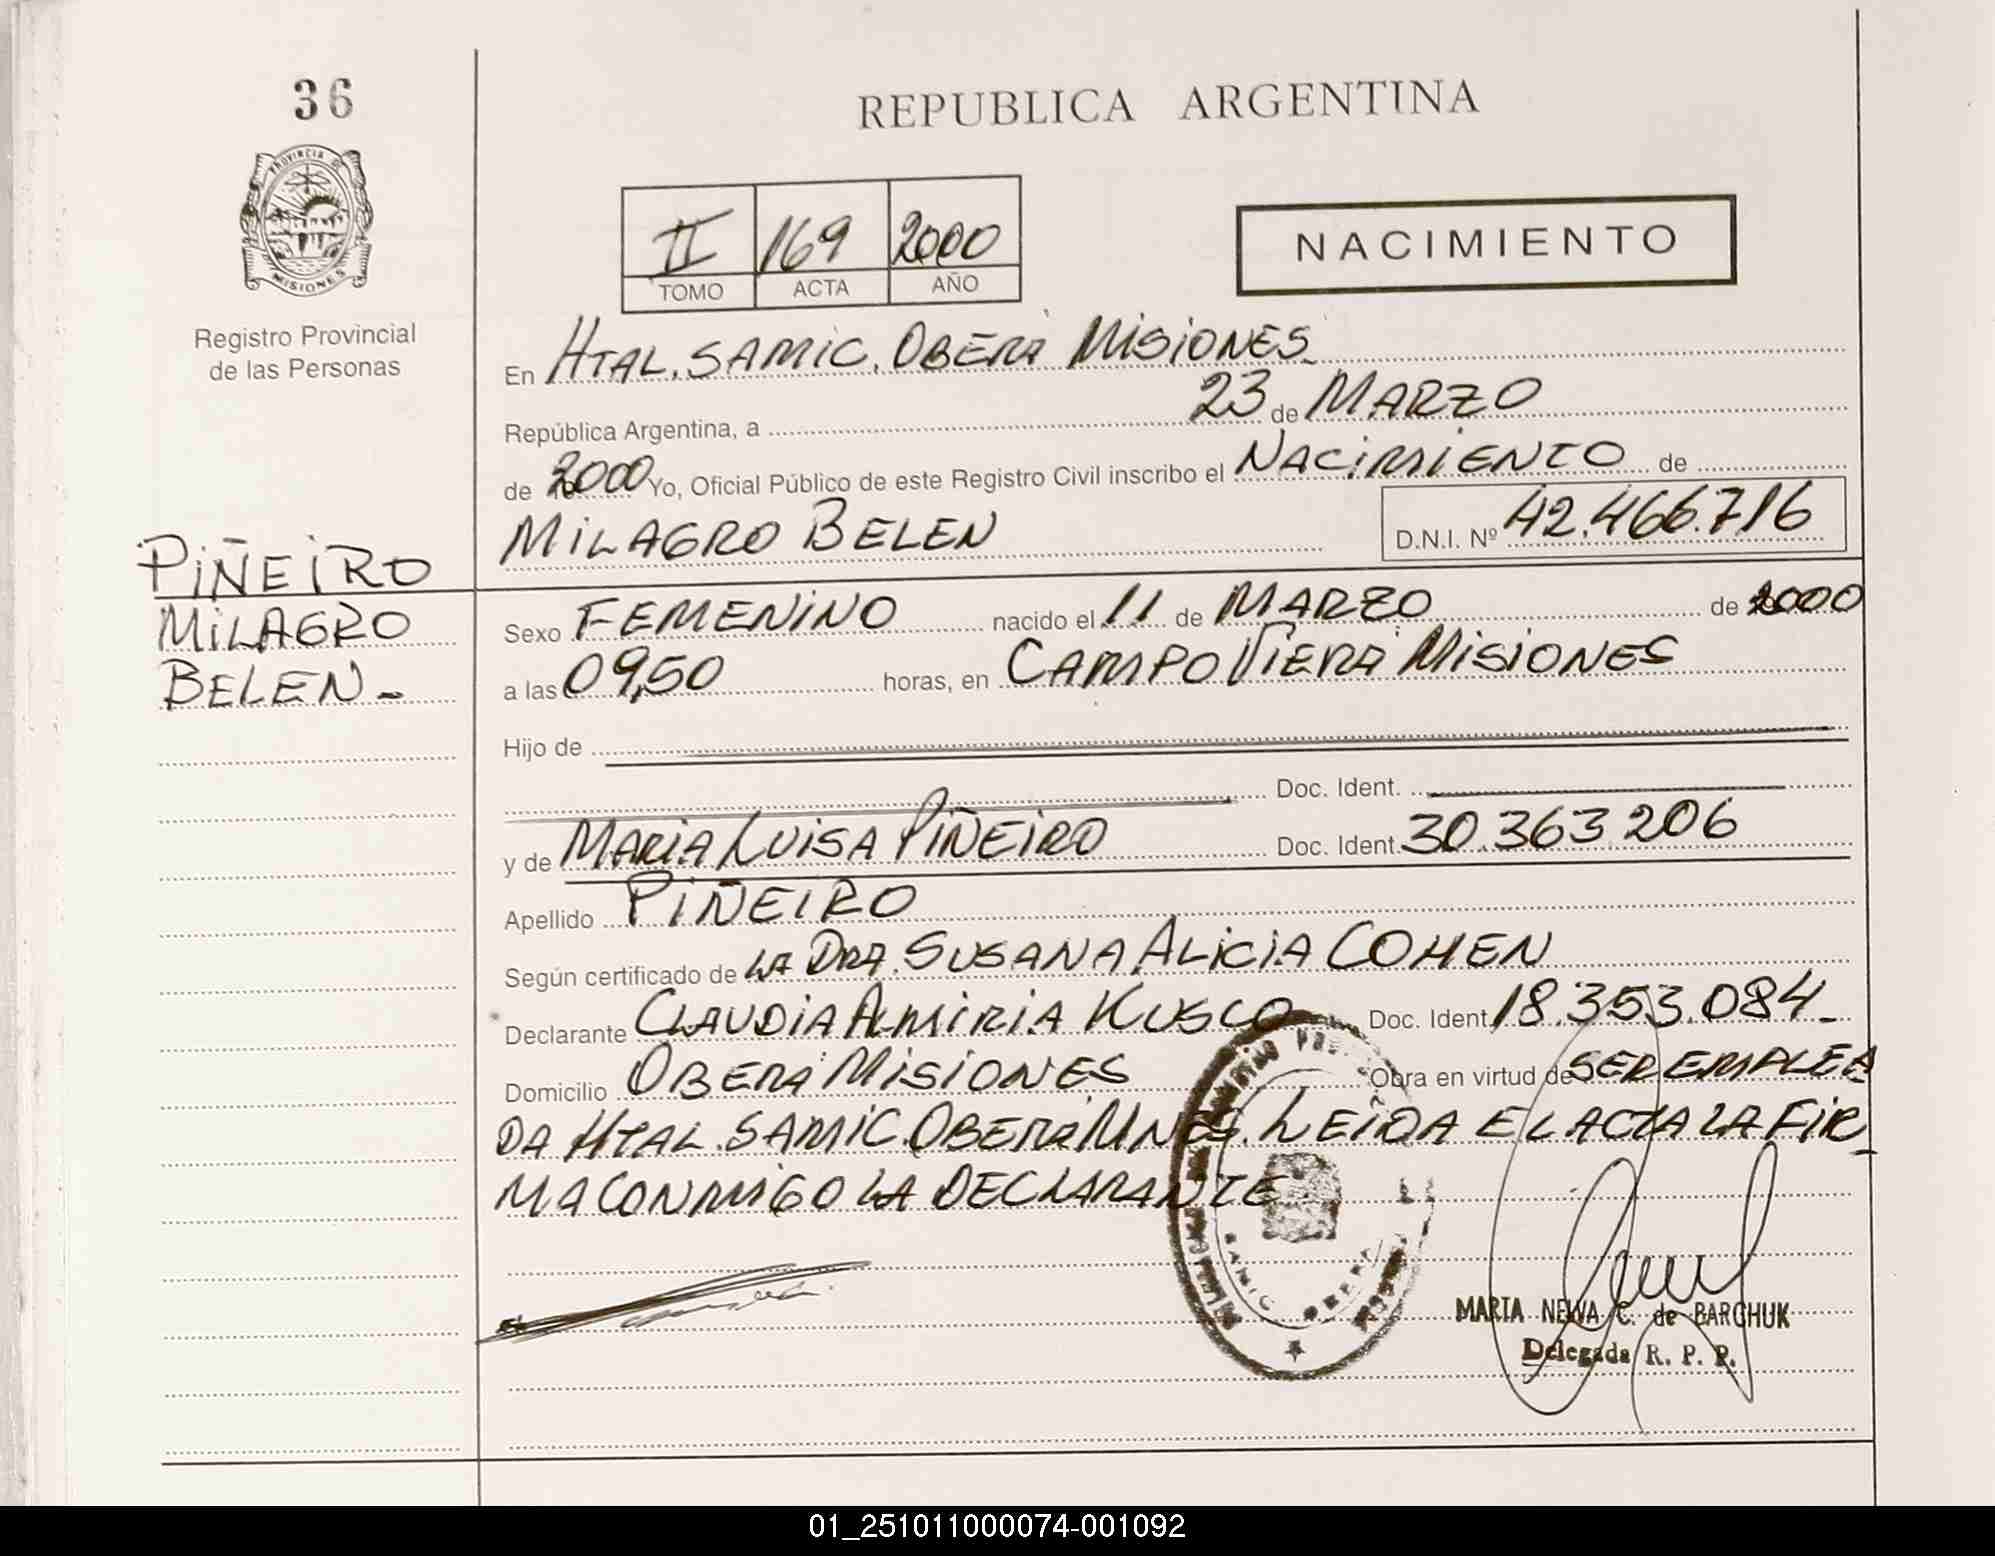 36
REPUBLICA ARGENTINA
PROVINCIA DE
MISIONES
II 169 2000
TOMO ACTA AÑO
NACIMIENTO
Registro Provincial
de las Personas
En HTAL. SAMIC. OBERA MISIONES
República Argentina, a 23 de MARZO
de 2000 Yo, Oficial Público de este Registro Civil inscribo el NACIMIENTO de
MILAGRO BELEN D.N.I. Nº 42.466.716
PIÑEIRO
MILAGRO
BELEN-
Sexo FEMENINO nacido el 11 de MARZO de 2000
a las 09,50 horas, en CAMPO VIERA MISIONES
Hijo de
Doc. Ident.
y de MARIA LUISA PIÑEIRO Doc. Ident. 30.363.206
Apellido PIÑEIRO
Según certificado de LA DRA. SUSANA ALICIA COHEN
Declarante CLAUDIA ALMIRIA KUSCO Doc. Ident. 18.353.084-
Domicilio OBERA MISIONES Obra en virtud de SER EMPLEA
DA HTAL. SAMIC. OBERA MNES. LEIDA EL ACTA LA FIR-
MA CONMIGO LA DECLARANTE
SAMIC OBERA
MARTA NELVA C. de BARCHUK
Delegada R. P. P.
01_251011000074-001092